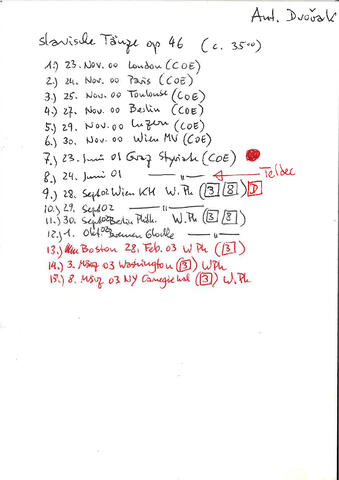 Ant. Dvořak
slavische Tänze op 46 (c. 35°°)
1.) 23. Nov. 00 London (COE)
2.) 24. Nov. 00 Paris (COE)
3.) 25. Nov. 00 Toulouse (COE)
4.) 27. Nov 00 Berlin (COE)
5.) 29. Nov. 00 Luzern (COE)
6.) 30. Nov. 00 Wien MV (COE)
7.) 23. Juni 01 Graz Styriarte (COE)
8.) 24. Juni 01 —"— Teldec
9.) 28. Sept 02 Wien KH W. Ph (3 8) D
10.) 29. Sept 02 —"—
11.) 30. Sept 02 Berlin Philh. W. Ph (3 8)
12.) 1. Okt. 02 Bremen Glocke —"—
13.) Boston 28. Feb. 03 W Ph (3)
14.) 3. März 03 Washington (3) W Ph
15.) 8. März 03 NY Carnegie Hall (3) W. Ph